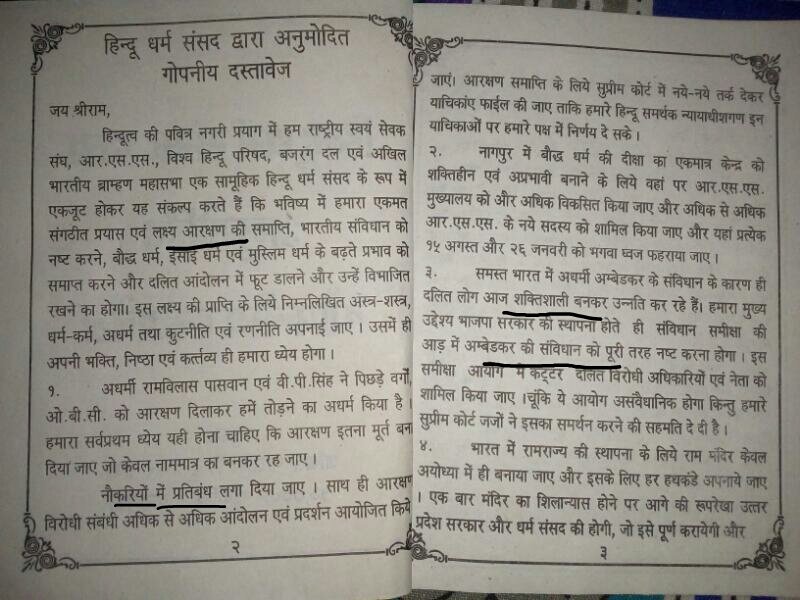 हिन्दू धर्म संसद द्वारा अनुमोदित
गोपनीय दस्तावेज
जय श्रीराम,
हिन्दुत्व की पवित्र नगरी प्रयाग में हम राष्ट्रीय स्वयं सेवक
संघ, आर.एस.एस., विश्व हिन्दू परिषद, बजरंग दल एवं अखिल
भारतीय ब्राम्हण महासभा एक सामूहिक हिन्दू धर्म संसद के रूप में
एकजूट होकर यह संकल्प करते हैं कि भविष्य में हमारा एकमत
संगठीत प्रयास एवं लक्ष्य आरक्षण की समाप्ति, भारतीय संविधान को
नष्ट करने, बौद्ध धर्म, इसाई धर्म एवं मुस्लिम धर्म के बढ़ते प्रभाव को
समाप्त करने और दलित आंदोलन में फूट डालने और उन्हें विभाजित
रखने का होगा। इस लक्ष्य की प्राप्ति के लिये निम्नलिखित अंस्त्र-शस्त्र,
धर्म-कर्म, अधर्म तथा कुटनीति एवं रणनीति अपनाई जाए । उसमें ही
अपनी भक्ति, निष्ठा एवं कर्त्तव्य ही हमारा ध्येय होगा।
१. अधर्मी रामविलास पासवान एवं वी.पी.सिंह ने पिछड़े वर्गों,
ओ.बी.सी. को आरक्षण दिलाकर हमें तोड़ने का अधर्म किया है ।
हमारा सर्वप्रथम ध्येय यही होना चाहिए कि आरक्षण इतना मूर्त बना
दिया जाए जो केवल नाममात्र का बनकर रह जाए ।
नौकरियों में प्रतिबंध लगा दिया जाए । साथ ही आरक्षण
विरोधी संबंधी अधिक से अधिक आंदोलन एवं प्रदर्शन आयोजित किये
२
जाएं। आरक्षण समाप्ति के लिये सुप्रीम कोर्ट में नये-नये तर्क देकर
याचिकांए फाईल की जाए ताकि हमारे हिन्दू समर्थक न्यायाधीशगण इन
याचिकाओं पर हमारे पक्ष में निर्णय दे सके ।
२. नागपुर में बौद्ध धर्म की दीक्षा का एकमात्र केन्द्र को
शक्तिहीन एवं अप्रभावी बनाने के लिये वहां पर आर.एस.एस.
मुख्यालय को और अधिक विकसित किया जाए और अधिक से अधिक
आर.एस.एस. के नये सदस्य को शामिल किया जाए और यहां प्रत्येक
१५ अगस्त और २६ जनवरी को भगवा ध्वज फहराया जाए ।
३. समस्त भारत में अधर्मी अम्बेडकर के संविधान के कारण ही
दलित लोग आज शक्तिशाली बनकर उन्नति कर रहे हैं। हमारा मुख्य
उद्देश्य भाजपा सरकार की स्थापना होते ही संविधान समीक्षा की
आड़ में अम्बेडकर की संविधान को पूरी तरह नष्ट करना होगा । इस
समीक्षा आयोग में कट्टर दलित विरोधी अधिकारियों एवं नेता को
शामिल किया जाए ।चूंकि ये आयोग असंवैधानिक होगा किन्तु हमारे
सुप्रीम कोर्ट जजों ने इसका समर्थन करने की सहमति दे दी है ।
४. भारत में रामराज्य की स्थापना के लिये राम मंदिर केवल
अयोध्या में ही बनाया जाए और इसके लिए हर हथकंडे अपनाये जाए
। एक बार मंदिर का शिलान्यास होने पर आगे की रूपरेखा उत्तर
प्रदेश सरकार और धर्म संसद की होगी, जो इसे पूर्ण करायेगी और
३